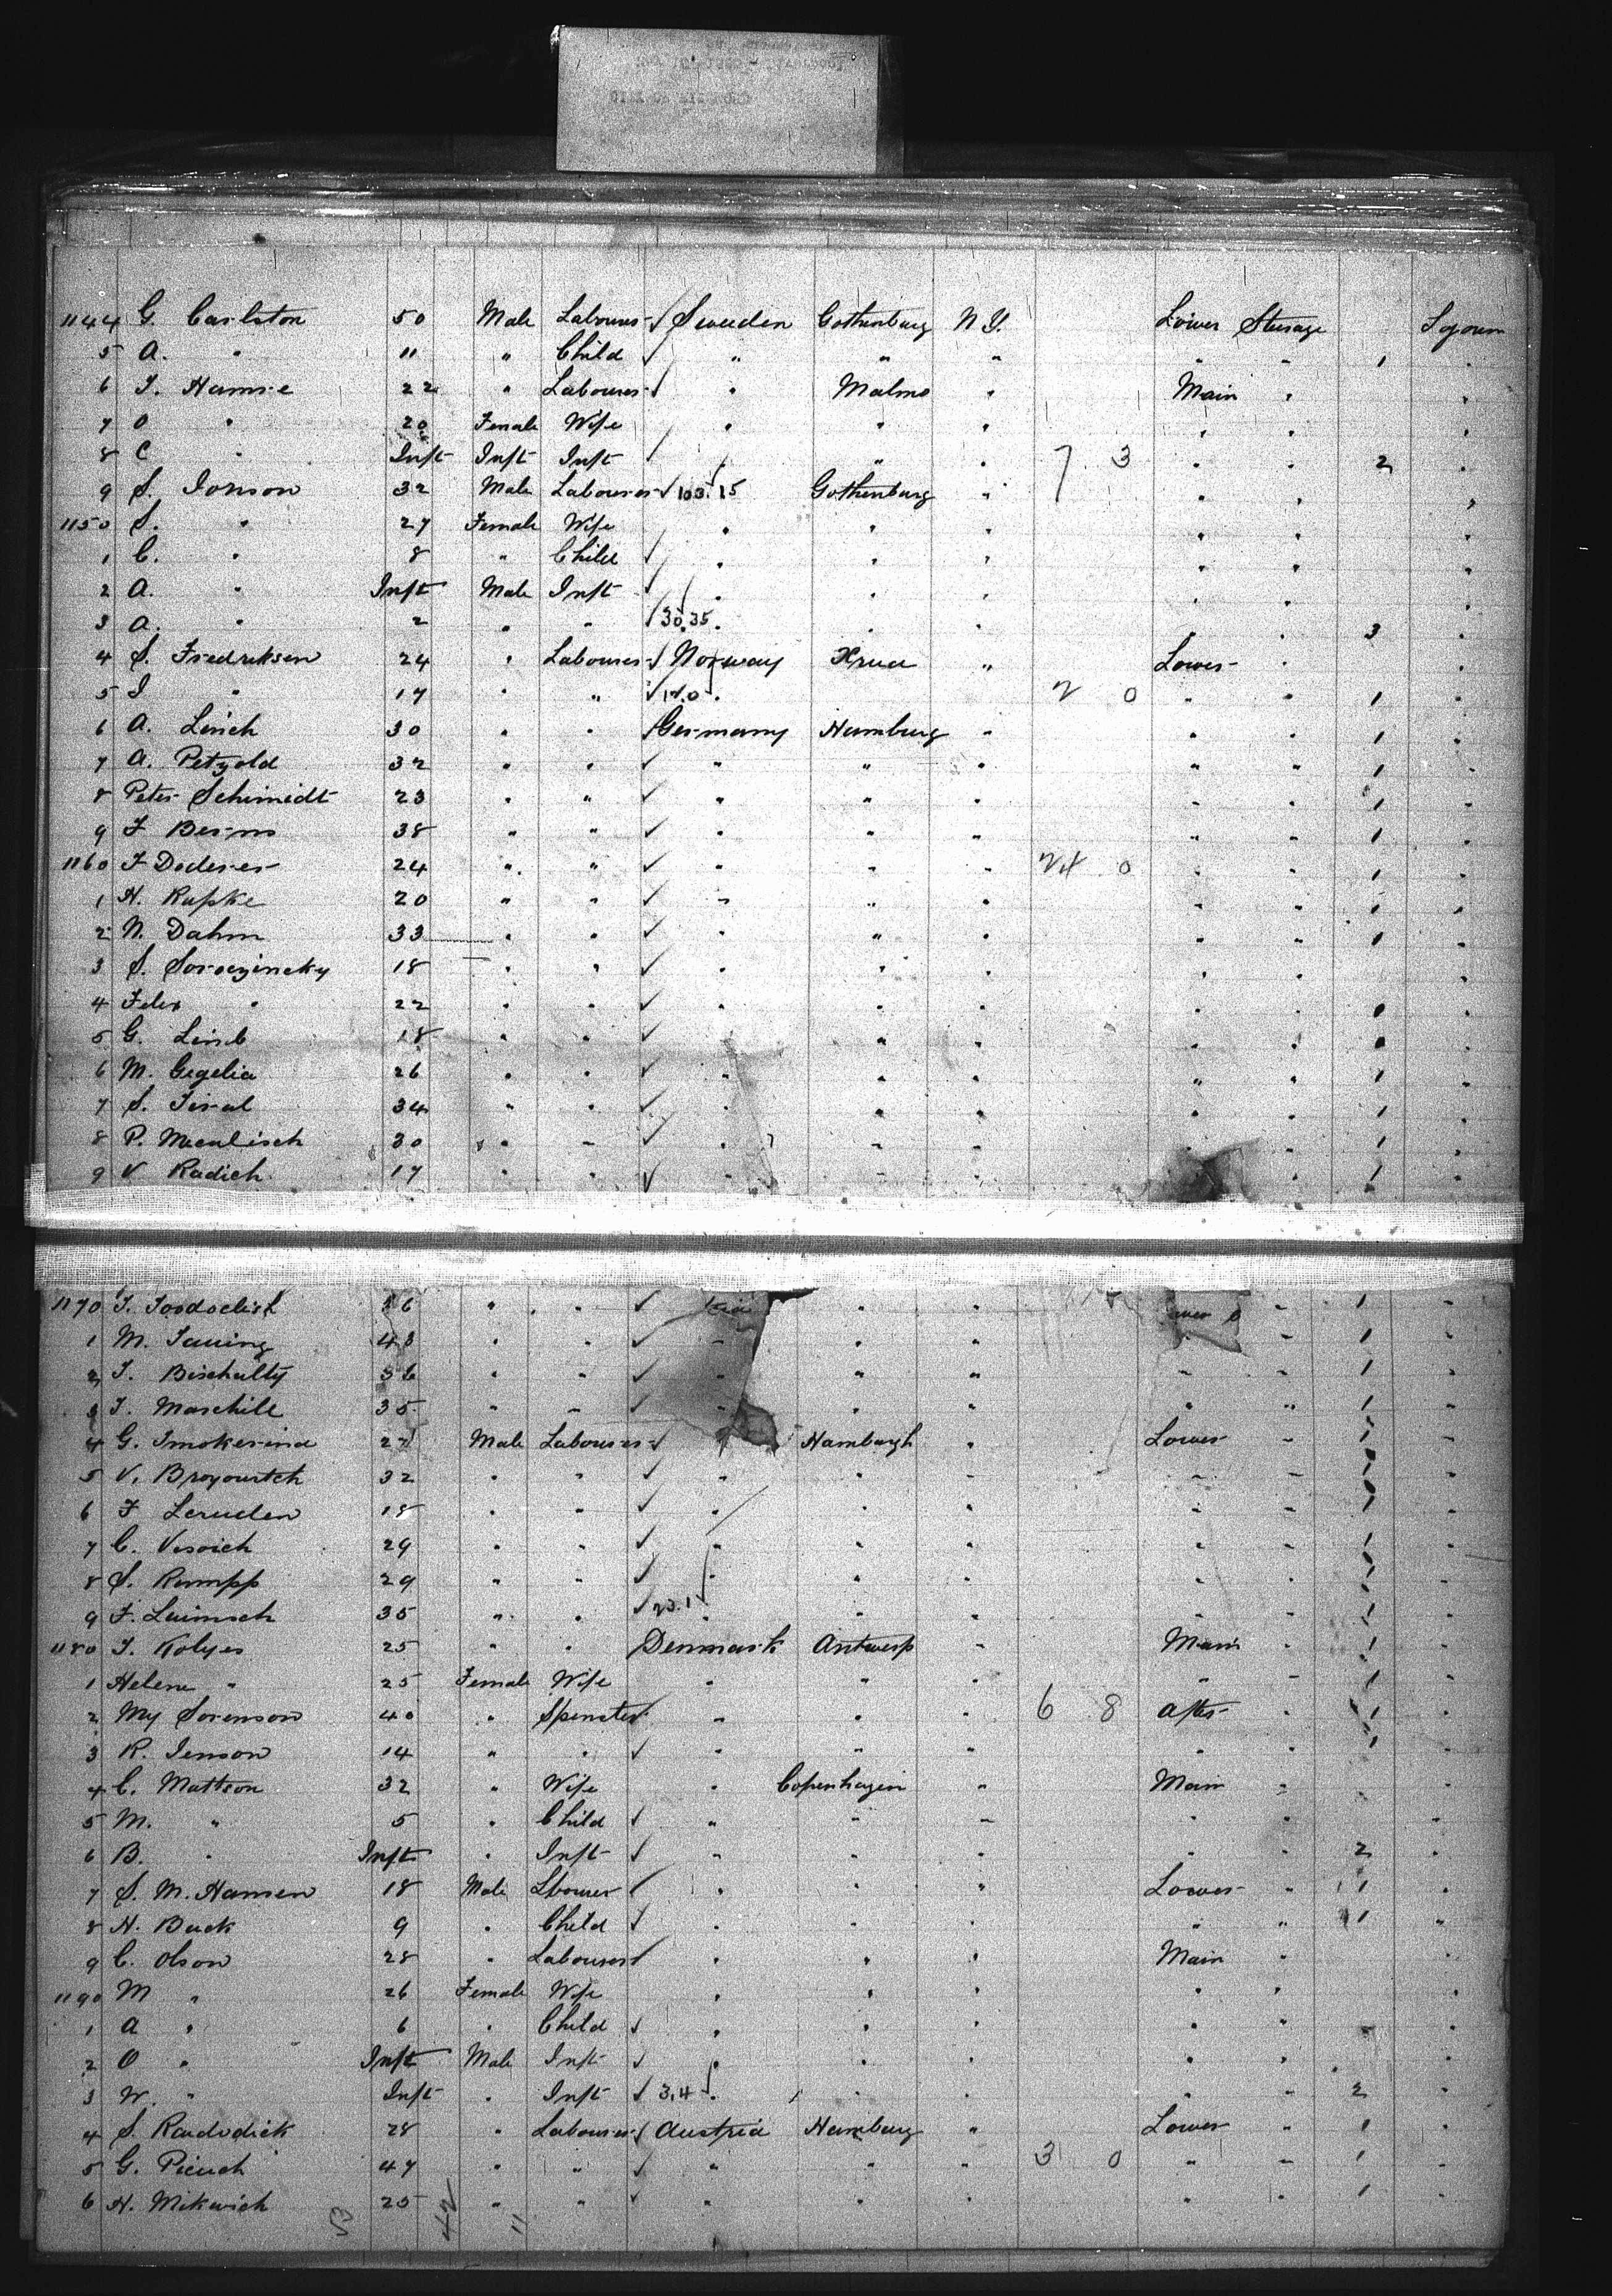 1144 G. Carlston 50 Male Labourer Sweden Gothenburg N Y. Lower Steerage Sojourn
5 A. " 11 " Child " " " " " 1 "
6 22 " Labourer " Malmo " Main " "
7 O " 20 Female Wife " " " " " "
8 C " Inft Inft Inft " " 7 3 " " 2 "
9 S. Jonson 32 Male Labourer 103.15 Gothenburg " " " "
1150 S. " 27 Female Wife " " " " " "
1 C. " 8 " Child " " " " " "
2 A. " Inft Male Inft " " " " " "
3 A. " 2 " " 30.35 " " " " " 3 "
4 S. Fredriksen 24 " Labourer Norway Xnia " Lower " "
5 I " 17 " " 2 0 " " 1 "
6 A. Linch 30 " " Germany Hamburg " " " 1 "
7 A. Petzold 32 " " " " " " " 1 "
8 Peter Schimidt 23 " " " " " " " 1 "
9 F Berns 38 " " " " " " " 1 "
1160 F Doderer 24 " " " " " 24 0 " " 1 "
1 H. Rupke 20 " " " " " " " 1 "
2 N. Dahm 33 " " " " " " " 1 "
3 S. Soroczincky 18 " " " " " " " "
4 " 22 " " " " " " " "
5 G. 18 " " " " " " " "
6 M. Gegelia 26 " " " " " " " 1 "
7 S. 34 " " " " " " " 1 "
8 P. 30 " " " " " " " 1 "
9 V Radich 17 " " " " " " 1 "
1170 36 " " " " " 1 "
1 M. 43 " " " " " " " 1 "
2 36 " " " " " " " 1 "
3 35 " " " " " " " 1 "
4 G. Smokerina 27 Male Labourer Hamburgh " Lower " 1 "
5 V. 32 " " " " " " " 1 "
6 F 18 " " " " " " " 1 "
7 C. Visoich 29 " " " " " " " 1 "
8 S. Rumpp 29 " " " " " " " 1 "
9 F. 35 " " 23.1 " " " " " 1 "
1180 25 " " Denmark Antwerp " Main " 1 "
1 Helene " 25 Female Wife " " " " " 1 "
2 My Sorenson 40 " Spinster " " " 6 8 After " 1 "
3 R. Jenson 14 " " " " " " " 1 "
4 C. Mattson 32 " Wife " Copenhagen " Main " "
5 M. " 5 " Child " " " " " "
6 B. " Inft " Inft " " " " " 2 "
7 S. M. Hansen 18 Male Lbourer " " " Lower " 1 "
8 H. Buck 9 " Child " " " " " 1 "
9 C. Olson 28 " Labourer " " " Main " "
1190 M " 26 Female Wife " " " " " "
1 A " 6 " Child " " " " " "
2 O " Inft Male Inft " " " " " "
3 W. " Inft " Inft 3.4 " " " " " 2 "
4 S. Raidodick 28 " Labourer Austria Hamburg " Lower " 1 "
5 G. 47 " " " " " 3 0 " " 1 "
6 H. Mikwich 25 " " " " " " " 1 "
53 42 11